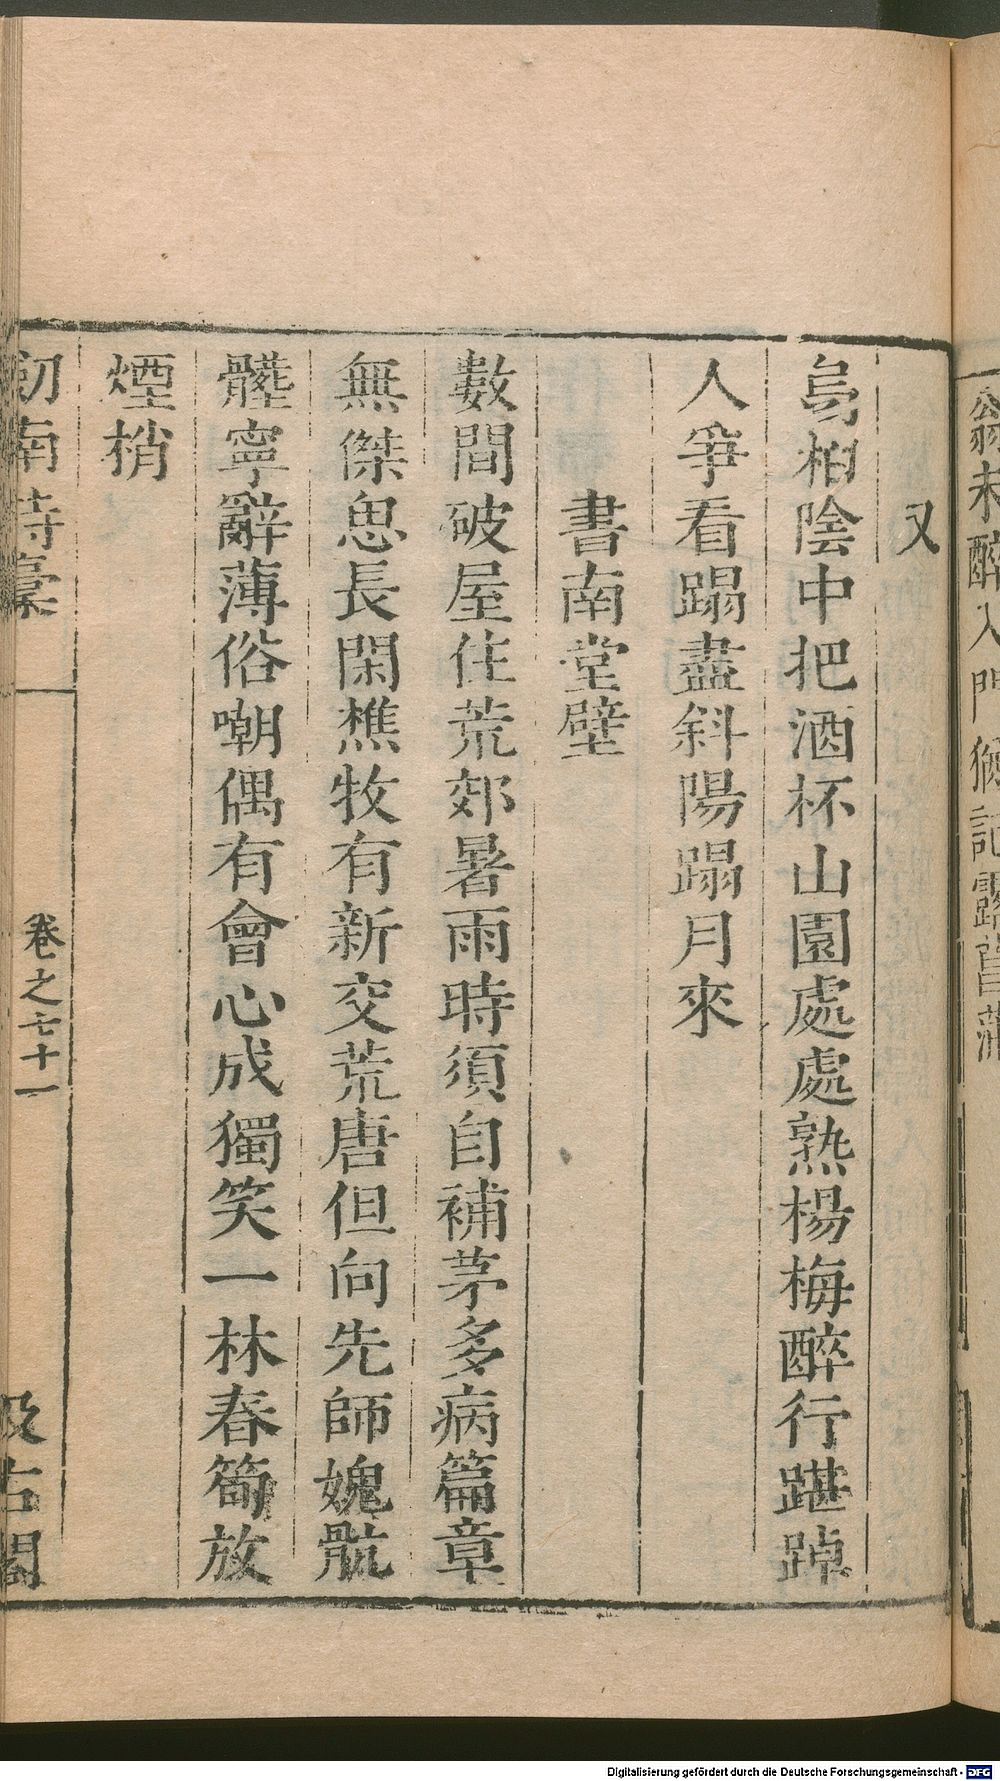 又
烏桕陰中把酒杯山園處處熟楊梅醉行踸踔
人爭看蹋盡斜陽蹋月來
書南堂壁
數間破屋住荒郊暑雨時須自補茅多病篇章
無傑思長閑樵牧有新交荒唐但向先師媿骯
髒寧辭薄俗嘲偶有會心成獨笑一林春筍放
煙梢
劒南詩稾
卷之七十一
汲古閣
未醉入門猶記露菖蒲
Digitalisierung gefördert durch die Deutsche Forschungsgemeinschaft - DFG